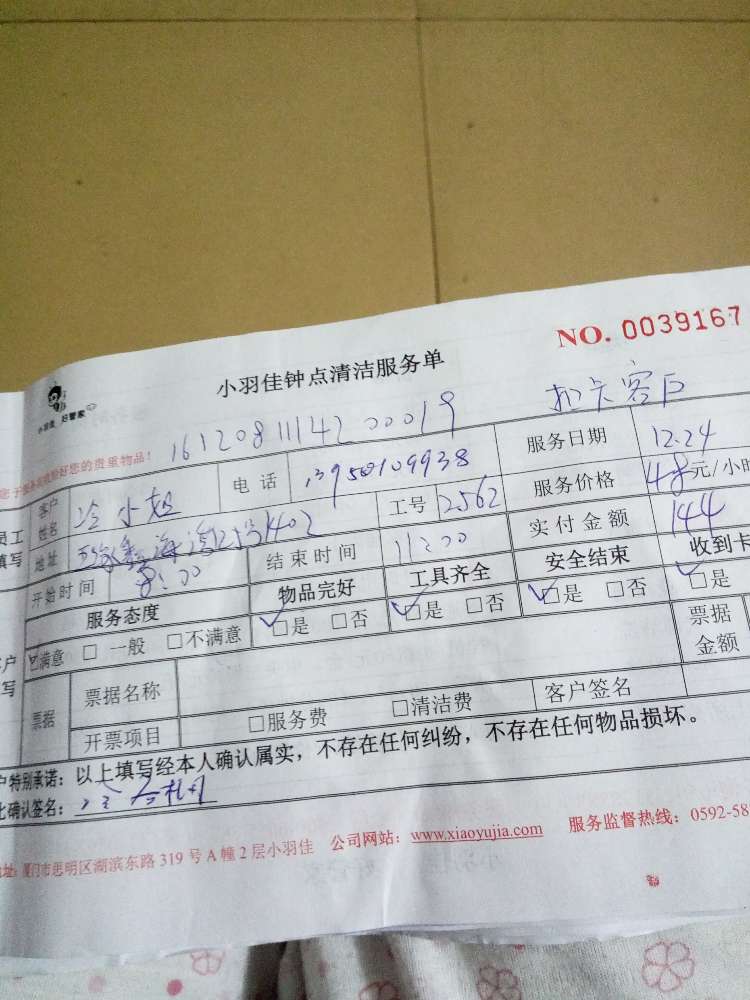 NO. 0039167
小羽佳钟点清洁服务单
小羽佳，好管家
扣卡客户
您贵重物品！
161208111420019
客户姓名 冷小姐 电话 13950109938 服务日期 12.24
员工填写
地址 海湾 1402 工号 2562 服务价格 48元/小时
开始时间 8:00 结束时间 11:00 实付金额 144
服务态度 物品完好 工具齐全 安全结束 收到卡
☑满意 □一般 □不满意 ☑是 □否 ☑是 □否 ☑是 □否 ☑是
票据 票据名称 客户签名 票据金额
开票项目 □服务费 □清洁费
户特别承诺：以上填写经本人确认属实，不存在任何纠纷，不存在任何物品损坏。
比确认签名：
地址：厦门市思明区湖滨东路319号A幢2层小羽佳 公司网站：www.xiaoyujia.com 服务监督热线：0592-58